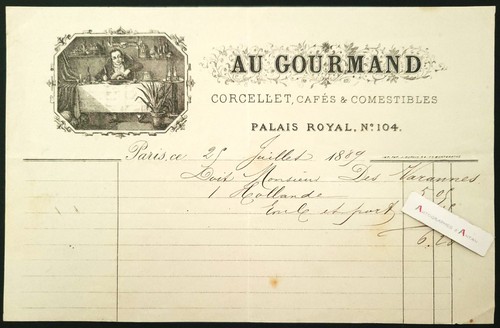 AU GOURMAND
CORCELLET, CAFÉS & COMESTIBLES
PALAIS ROYAL, No 104.
Paris, ce 25 Juillet 1889
Doit Monsieur Des Varannes
1 Hollande 5.05
Emb et port
6.25
AUTOGRAPHES & AUTRES